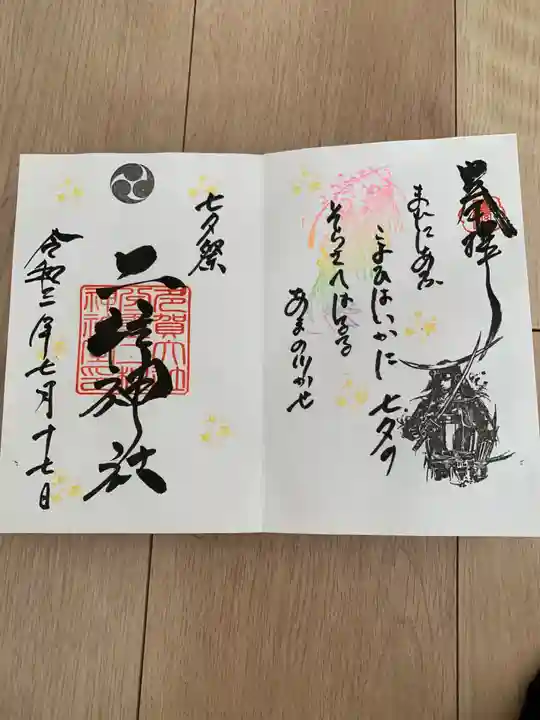 奉拝
まれにあふ
こよひはいかに七夕の
そらさへはるる
あまの川かせ
七夕祭
二柱神社
令和三年七月十七日